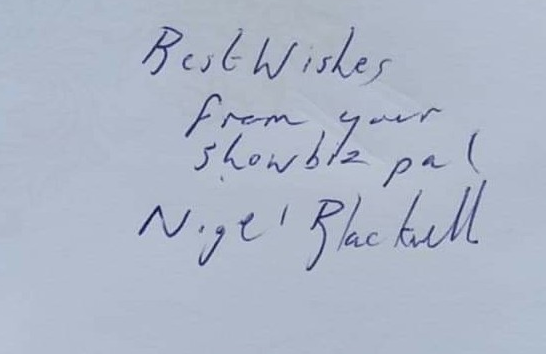 Best Wishes
from your
showbiz pal
Nigel Blackwell